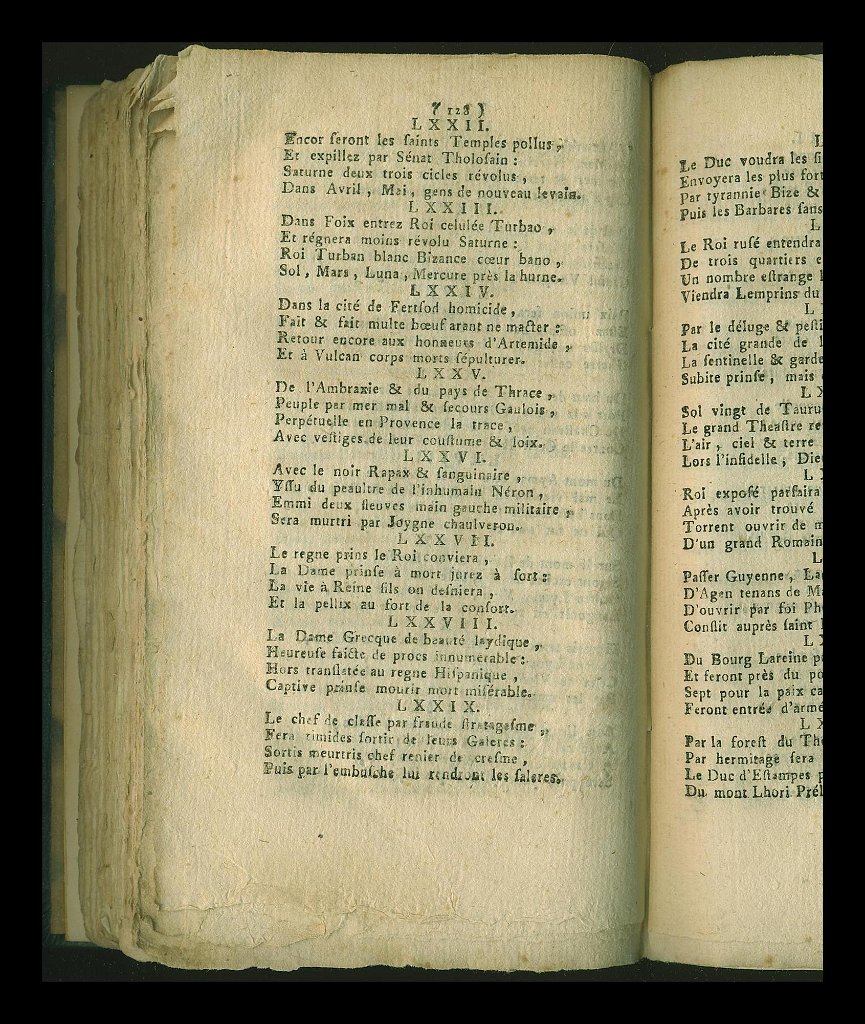 ( 128 )
LXXII.
Encor ſeront les ſaints Temples pollus,
Et expillez par Sénat Tholoſain :
Saturne deux trois cicles révolus,
Dans Avril, Mai, gens de nouveau levain.
LXXIII.
Dans Foix entrez Roi celulée Turbao,
Et régnera moins révolu Saturne :
Roi Turban blanc Bizance cœur bano,
Sol, Mars, Luna, Mercure près la hurne.
LXXIV.
Dans la cité de Fertſod homicide,
Fait & fait multe bœuf arant ne macter :
Retour encore aux honneurs d'Artemide,
Et à Vulcan corps morts ſépulturer.
LXXV.
De l'Ambraxie & du pays de Thrace,
Peuple par mer mal & ſecours Gaulois,
Perpétuelle en Provence la trace,
Avec veſtiges de leur couſtume & loix.
LXXVI.
Avec le noir Rapax & ſanguinaire,
Yſſu du peaultre de l'inhumain Néron,
Emmi deux fleuves main gauche militaire,
Sera murtri par Joygne chaulveron.
LXXVII.
Le regne prins le Roi conviera,
La Dame prinſe à mort jurez à ſort :
La vie à Reine fils on deſniera,
Et la pellix au fort de la confort.
LXXVIII.
La Dame Grecque de beauté laydique,
Heureuſe faicte de procs innumérable :
Hors tranſlatée au regne Hiſpanique,
Captive prinſe mourir mort miſérable.
LXXIX.
Le chef de claſſe par fraude ſtratageſme,
Fera timides ſortir de leurs Galeres :
Sortis meurtris chef renier de creſme,
Puis par l'embuſche lui rendront les ſaleres.
L
Le Duc voudra les
Envoyera les plus
Par tyrannie Bize &
Puis les Barbares ſans
L
Le Roi ruſé entendra
De trois quartiers
Un nombre eſtrange
Viendra Lemprins du
L
Par le déluge &
La cité grande de
La ſentinelle &
Subite prinſe, mais
L
Sol vingt de
Le grand Theaſtre
L'air, ciel & terre
Lors l'infidelle,
L
Roi expoſé parfaira
Après avoir trouvé
Torrent ouvrir de
D'un grand Romain
L
Paſſer Guyenne,
D'Agen tenans de
D'ouvrir par foi
Conſlit auprès ſaint
L
Du Bourg Lareine
Et feront près du
Sept pour la paix
Feront entrée
L
Par la foreſt du
Par hermitage ſera
Le Duc d'Eſtampes
Du mont Lhori